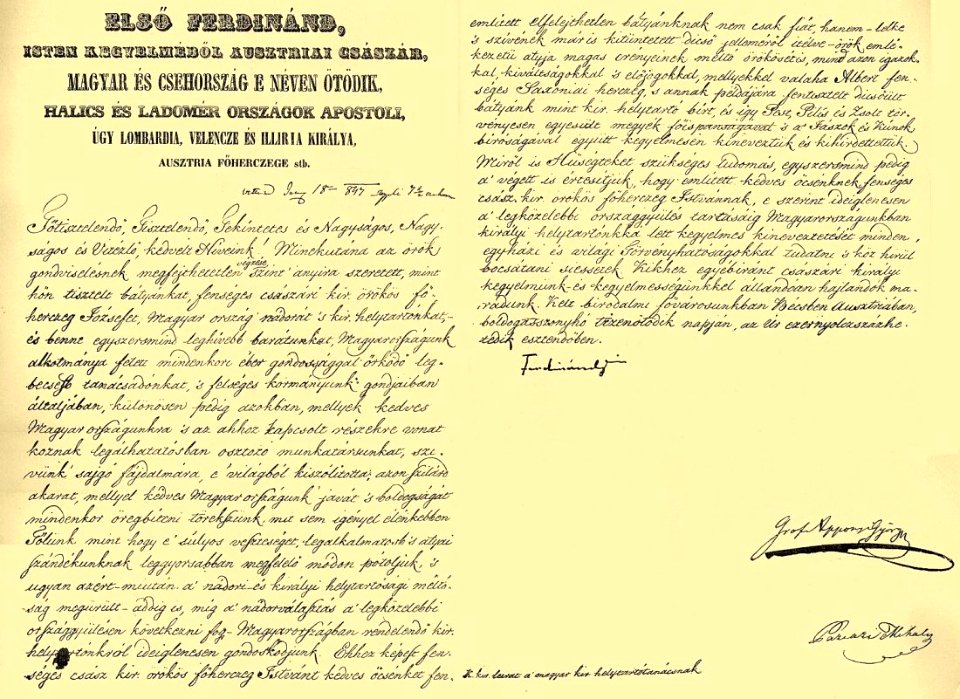 ELSŐ FERDINÁND,
ISTEN KEGYELMÉBŐL AUSZTRIAI CSÁSZÁR,
MAGYAR ÉS CSEHORSZÁG E NÉVEN ÖTÖDIK,
HALICS ÉS LADOMÉR ORSZÁGOK APOSTOLI,
ÚGY LOMBARDIA, VELENCZE ÉS ILLIRIA KIRÁLYA,
AUSZTRIA FŐHERCZEGE stb.
Főtisztelendő, Tisztelendő, Tekintetes és Nagyságos, Nagy-
ságos és Vitézlő kedvelt Híveink! Minekutána az örök
gondviselésnek megfejthetetlen végzése szint' anyira szeretett, mint
hőn tisztelt bátyánkat, fenséges császári kir. örökös fő-
herczeg Józsefet, Magyar ország nádorát 's kir. helytartónkat,-
és benne egyszersmind leghívebb barátunkat, Magyarországunk
alkotmánya felett mindenkori éber gondossággal őrködő leg-
becsesb tanácsadónkat, 's felséges kormányunk' gondjaiban
általjában, különösen pedig azokban, mellyek kedves
Magyar országunkra 's az ahhoz kapcsolt részekre vonat
koznak legálhatatosban osztozó munkatársunkat, szi-
vünk' sajgó fájdalmára, e' világból kiszólította; azon szilárd
akarat, mellyel kedves Magyar országunk' javát 's boldogságát
mindenkor öregbíteni törekszünk, mit sem igényel élénkebben
Tőlünk mint hogy e' súlyos veszteséget, legalkalmatosb 's atyai
szándékunknak leggyorsabban megfelelő módon pótoljuk, 's
ugyan azért - miután a' nádori - és királyi helytartósági méltó-
ság megürült - addig is, míg a' nádorválasztás a' legközelebbi
országgyűlésen következni fog - Magyarországban rendelendő kir.
helytartónkról ideiglenesen gondoskodjunk. Ehhez képest fen-
séges csász. kir. örökös főherczeg Istvánt kedves öcsénket fen.
említett elfelejthetlen bátyánknak nem csak fiát, hanem - lelke
's szívének már is kitüntetett dicső jelleméről ítélve - örök emlé-
kezetű atyja magas erényeinek méltó örökösét is, mint azon igazok-
kal, kiváltságokkal 's előjogokkal, mellyekkel valaha Albert fen-
séges Saxoniai herczeg, 's annak példájára fentisztelt dicsőült
bátyánk mint kir. helytartó bírt, és így Pest, Pilis és Zsolt tör-
vényesen egyesült megyék főispánságával 's a' Jászok és Kúnok
bíróságával együtt kegyelmesen kineveztük és kihirdettettük.
Miről is Hűségteket szükséges tudomás, egyszersmind pedig
a' végett is értesítjük, hogy említett kedves öcsénknek, fenséges
császár. kir. örökös főherczeg Istvánnak, e szerint ideiglenesen
a' legközelebbi országgyűlés tartásáig Magyarországunkban
királyi helytartónkká lett kegyelmes kineveztetését minden
egyházi és világi Törvényhatóságokkal tudatni 's köz hírűl
bocsátani siessetek. Kikhez egyébiránt császári királyi
kegyelmünk - és kegyelmességünkkel állandóan hajlandók ma-
radunk. Kelt birodalmi fővárosunkban Bécsben Ausztriában,
boldogasszonyhó tizenötödik napján, az ezernyolczszáznegyvenhe
tedik esztendőben.
Ferdinánd
Gróf Apponyi György
Mihály
K. kir. leirat a magyar kir. helytartótanácsnak